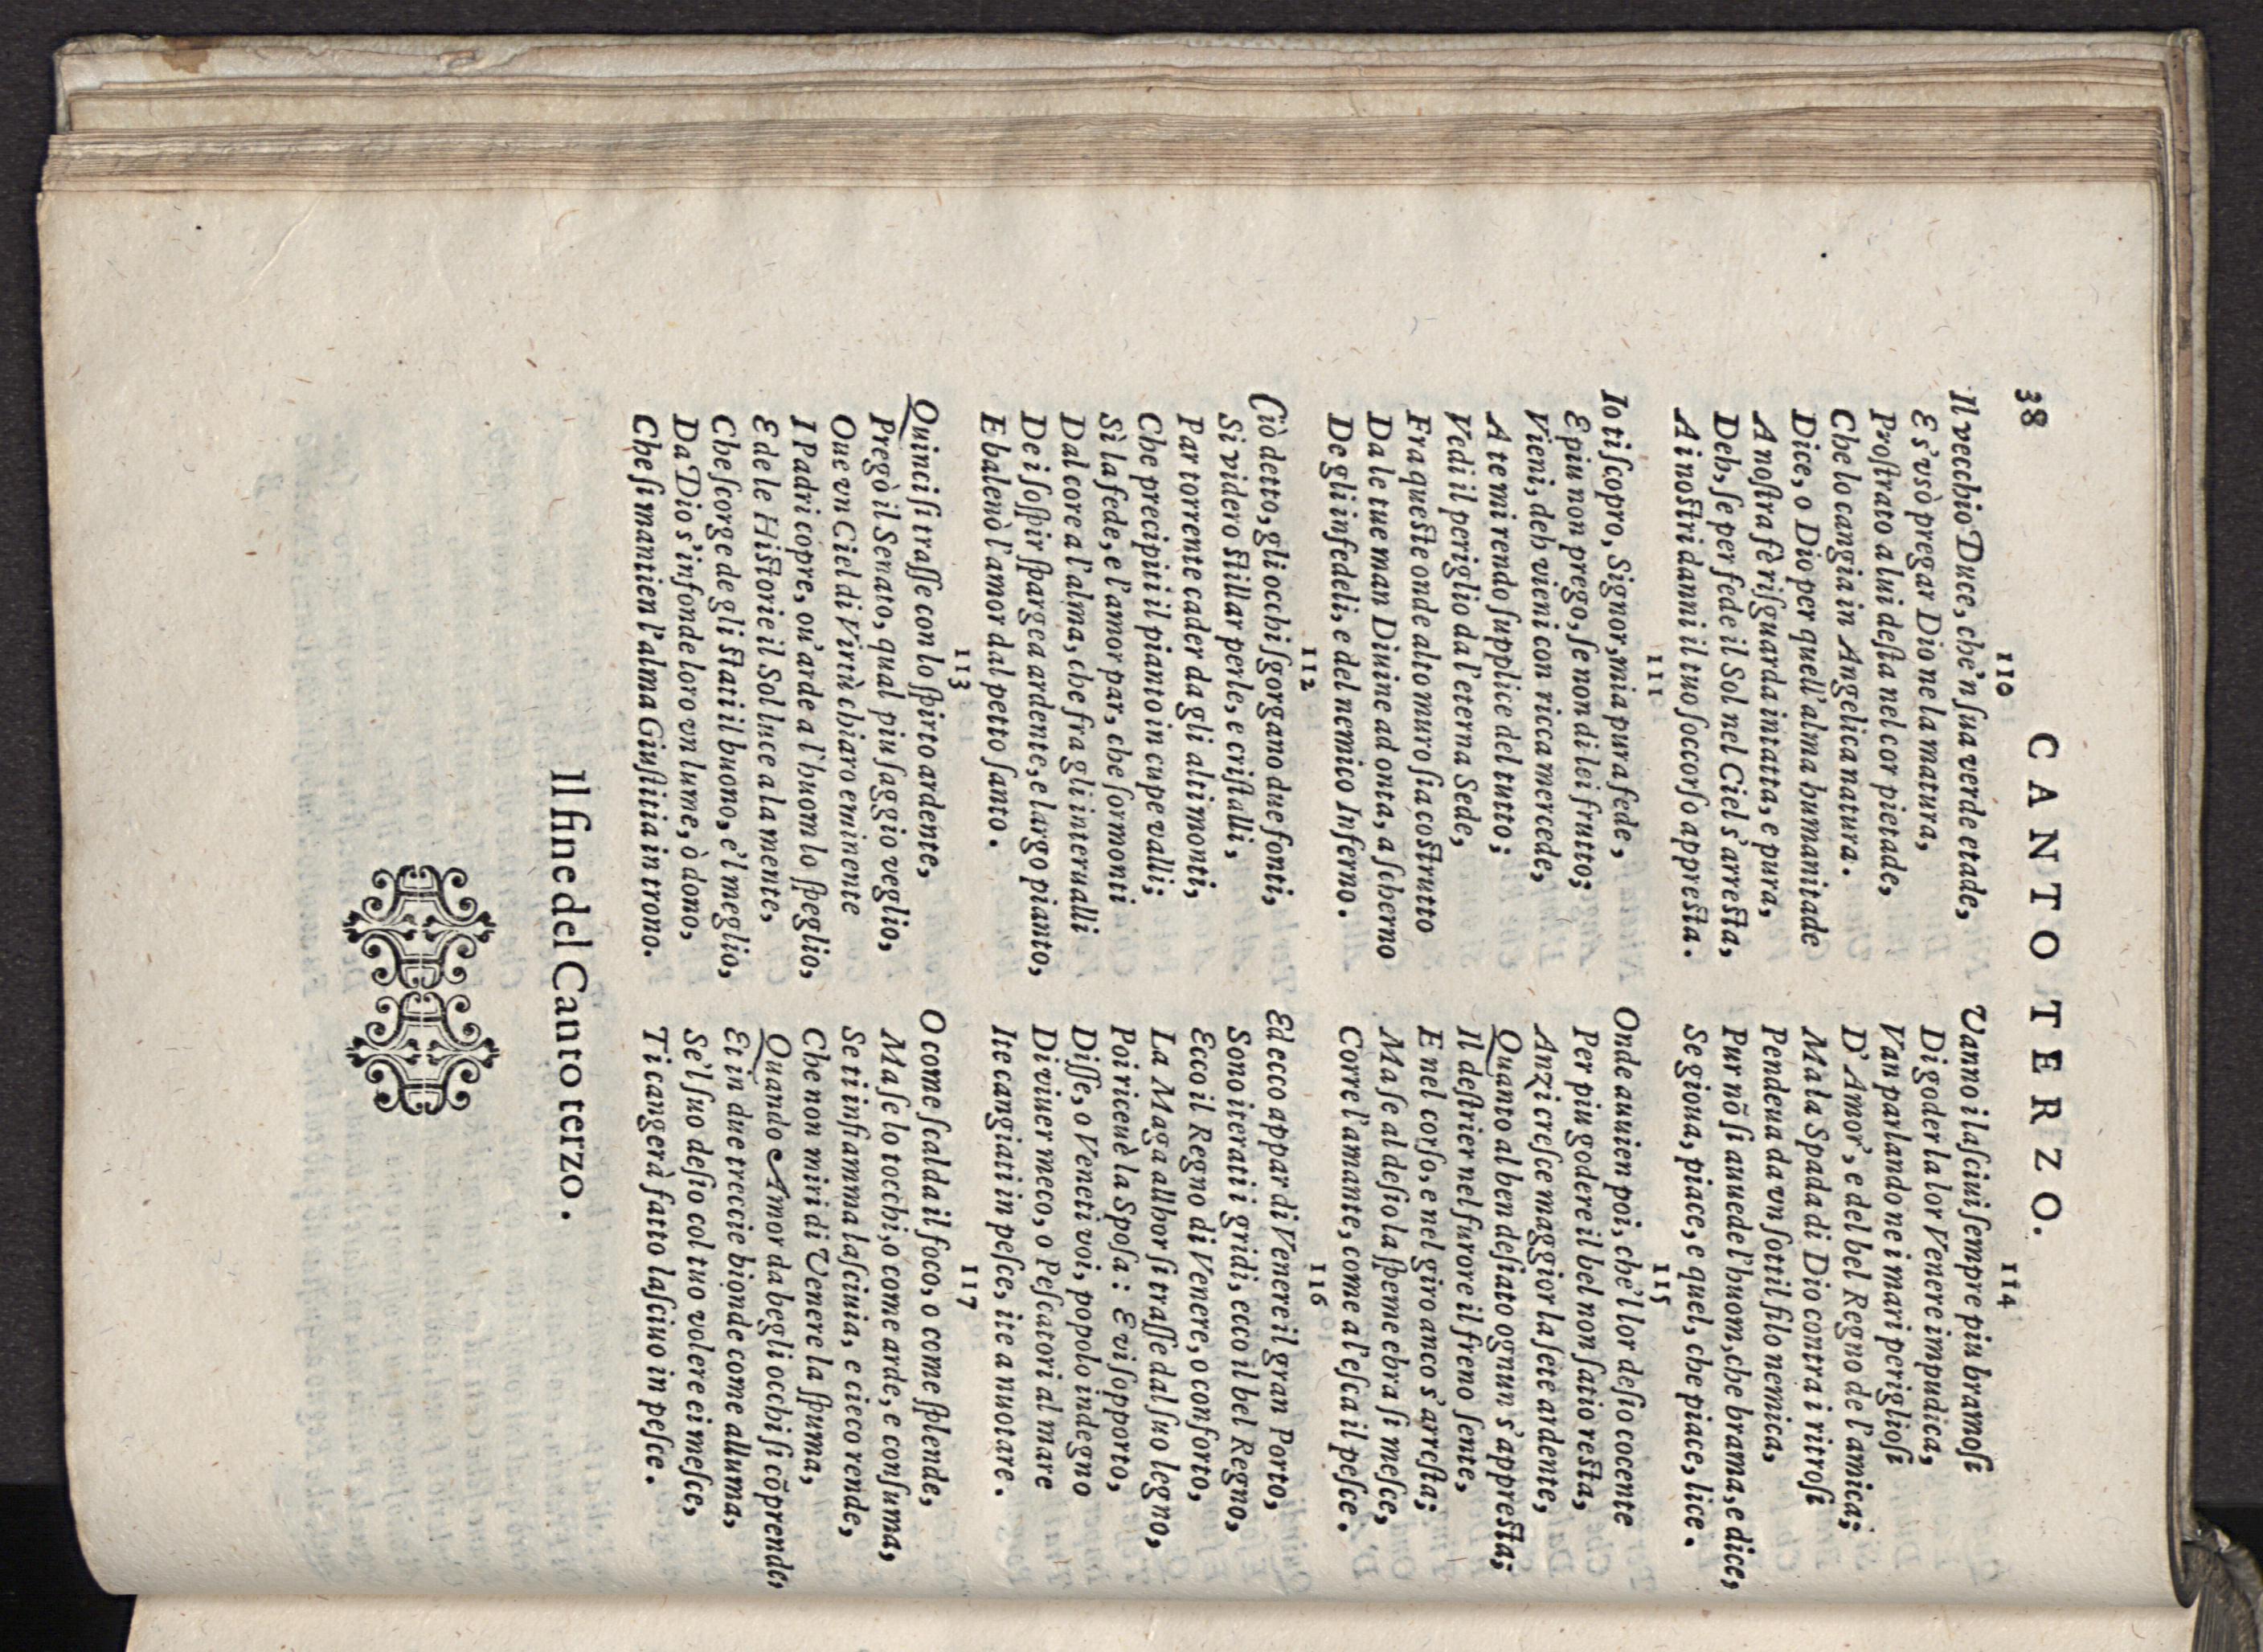 38
CANTO TERZO.
110
Il vecchio Duce, che'n ſua verde etade,
E s'vsò pregar Dio ne la matura,
Proſtrato a lui deſta nel cor pietade,
Che lo cangia in Angelica natura.
Dice, o Dio per quell'alma humanitade
A noſtra fè riſguarda intatta, e pura,
Deh, ſe per fede il Sol nel Ciel s'arreſta,
A i noſtri danni il tuo ſoccorſo appreſta.
111
Io ti ſcopro, Signor, mia pura fede,
E piu non prego, ſe non di lei frutto;
Vieni, deh vieni con ricca mercede,
A te mi rendo ſupplice del tutto;
Vedi il periglio da l'eterna Sede,
Fra queſte onde alto muro ſia coſtrutto
Da le tue man Diuine ad onta, a ſcherno
De gli infedeli, e del nemico Inferno.
112
Ciò detto, gli occhi ſgorgano due fonti,
Si videro ſtillar perle, e criſtalli,
Par torrente cader da gli alti monti,
Che precipiti il pianto in cupe valli;
Sì la fede, e l'amor par, che ſormonti
Dal core a l'alma, che fra gli interualli
De i ſoſpir ſpargea ardente, e largo pianto,
E balenò l'amor dal petto ſanto.
113
Quinci ſi traſſe con lo ſpirto ardente,
Pregò il Senato, qual piu ſaggio veglio,
Oue vn Ciel di Virtù chiaro eminente
I Padri copre, ou'arde a l'huom lo ſpeglio,
E de le Hiſtorie il Sol luce a la mente,
Che ſcorge de gli ſtati il buono, e'l meglio,
Da Dio s'infonde loro vn lume, ò dono,
Che ſi mantien l'alma Giuſtitia in trono.
114
Vanno i laſciui ſempre piu bramoſi
Di goder la lor Venere impudica,
Van parlando ne i mari periglioſi
D'Amor', e del bel Regno de l'amica;
Ma la Spada di Dio contra i ritroſi
Pendeua da vn ſottil filo nemica,
Pur nõ ſi auuede l'huom, che brama, e dice,
Se gioua, piace, e quel, che piace, lice.
115
Onde auuien poi, che'l lor deſio cocente
Per piu godere il bel non ſatio reſta,
Anzi creſce maggior la ſete ardente,
Quanto al ben deſiato ognun s'appreſta;
Il deſtrier nel furore il freno ſente,
E nel corſo, e nel giro anco s'arreſta;
Ma ſe al deſio la ſpeme ebra ſi meſce,
Corre l'amante, come a l'eſca il peſce.
116
Ed ecco appar di Venere il gran Porto,
Sono iterati i gridi, ecco il bel Regno,
Ecco il Regno di Venere, o conforto,
La Maga allhor ſi traſſe dal ſuo legno,
Poi riceuè la Spoſa: E vi ſopporto,
Diſſe, o Veneti voi, popolo indegno
Di viuer meco, o Peſcatori al mare
Ite cangiati in peſce, ite a nuotare.
117
O come ſcalda il foco, o come ſplende,
Ma ſe lo tocchi, o come arde, e conſuma,
Se ti infiamma laſciuia, e cieco rende,
Che non miri di Venere la ſpuma,
Quando Amor da begli occhi ſi cõprende,
Ei in due treccie bionde come alluma,
Se'l ſuo deſio col tuo volere ei meſce,
Ti cangerà fatto laſciuo in peſce.
Il fine del Canto terzo.